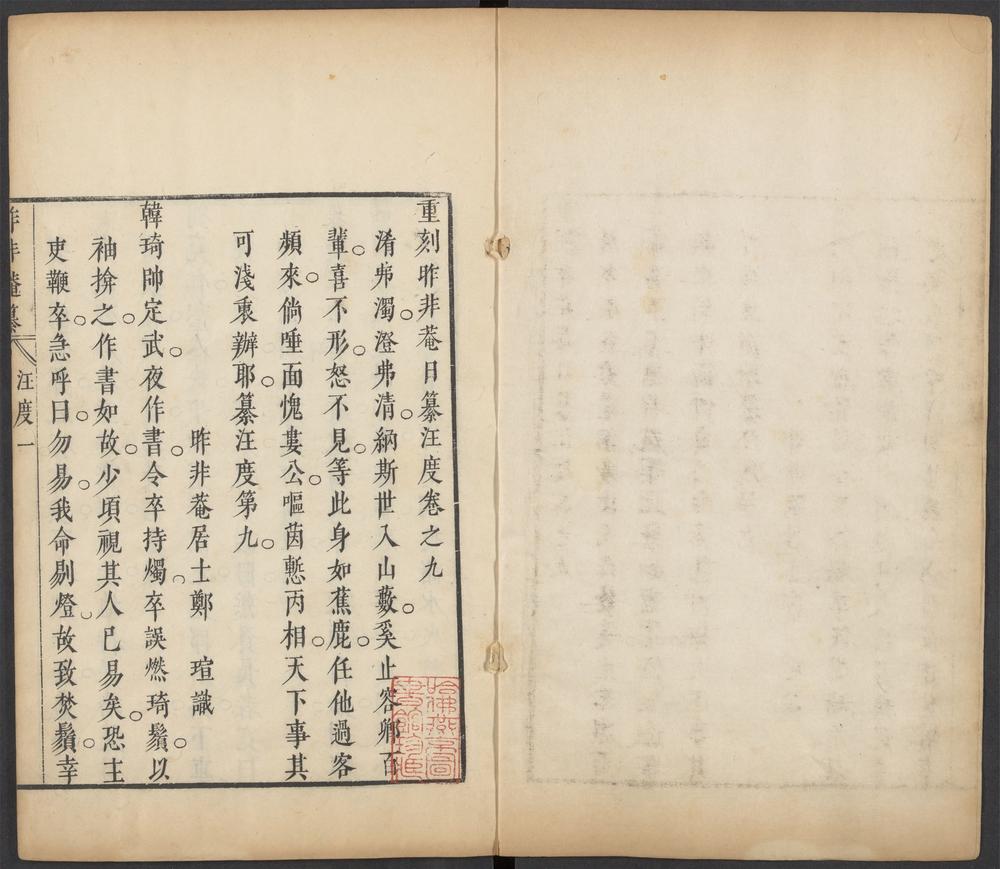 重刻昨非菴日纂汪度卷之九
淆弗濁澄弗清納斯世入山藪奚止容卿百
輩喜不形怒不見等此身如蕉鹿任他過客
頻來倘唾面愧婁公嘔茵慙丙相天下事其
可淺衷辦耶纂汪度第九
昨非菴居士鄭瑄識
韓琦帥定武夜作書令卒持燭卒誤燃琦鬚以
袖揜之作書如故少頃視其人已易矣恐主
吏鞭卒急呼曰勿易我命剔燈故致焚鬚幸
昨非菴纂
汪度一
哈佛燕京圖書館珍藏